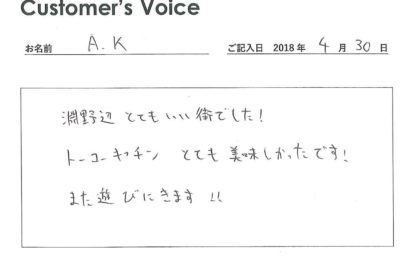 Customer's Voice
お名前 A.K ご記入日 2018年 4月 30日
淵野辺 とても いい 街でした!
トーコーキッチン とても 美味しかったです!
また 遊びにきます !!